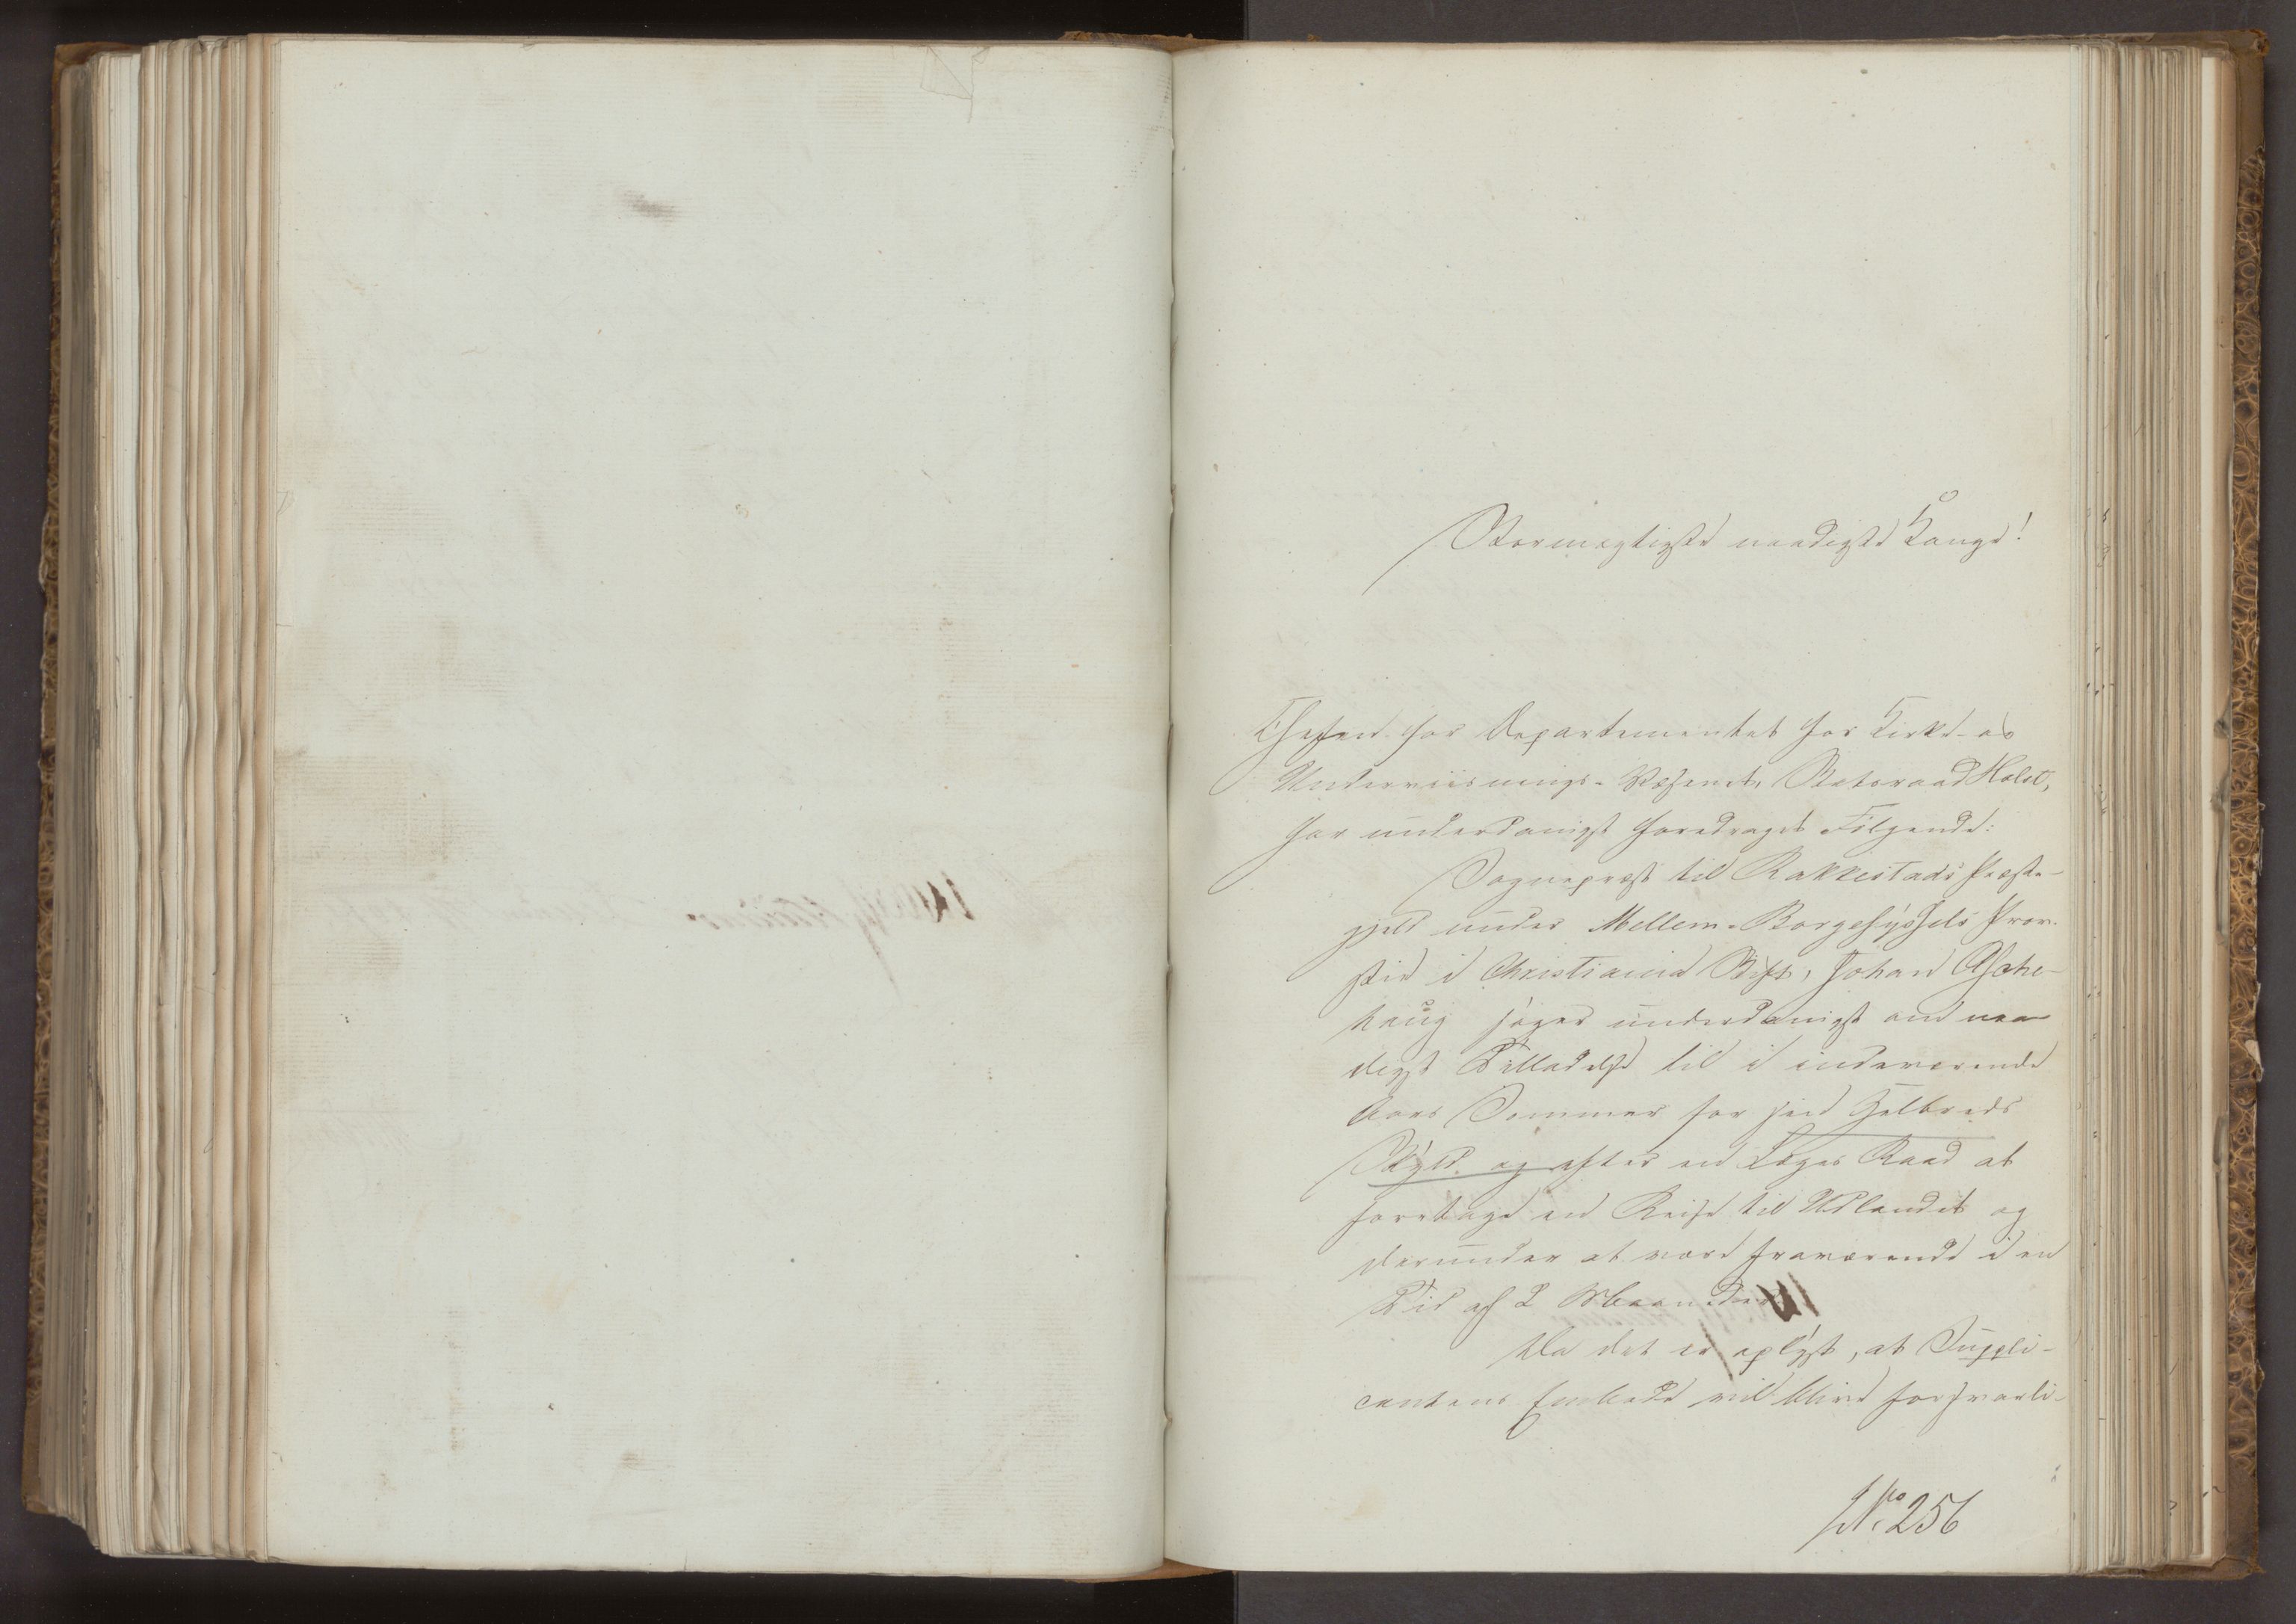 Stormægtigste naadigste Konge!
Chefen for Departementet for Kirke- og
Underviisnings-Væsenet, Statsraad Holst,
har underdanigst foredraget Følgende:
Sognepræst til Rakkestads Præste-
gjeld under Mellem-Borgesyssels Prov-
stie i Christiania Stift, Johan Asche-
houg søger underdanigst om naa-
digst Tilladelse til i indeværende
Aars Sommer for sin Helbreds
Skyld og efter en Læges Raad at
foretage en Reise til Udlandet og
derunder at være fraværende i en
Tid af 2 Maaneder.
Da det er oplyst, at Suppli-
cantens Embede vil blive forsvarli-
No. 256